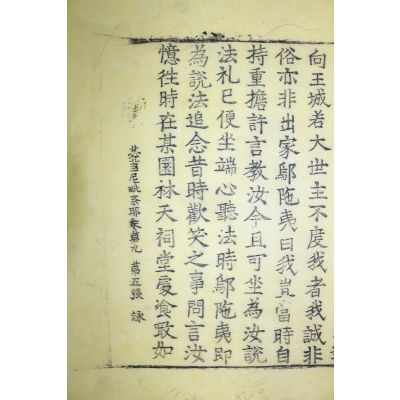 向王城若大世主不度我者我誠非
俗亦非出家鄔陁夷曰我豈當時自
持重擔許言教汝今且可坐為汝說
法礼已便坐端心聽法時鄔陁夷即
為說法追念昔時歡笑之事問言汝
憶徃時在某園林天祠堂處飡噉如
苾芻尼毗奈耶卷第九 第五張 詠